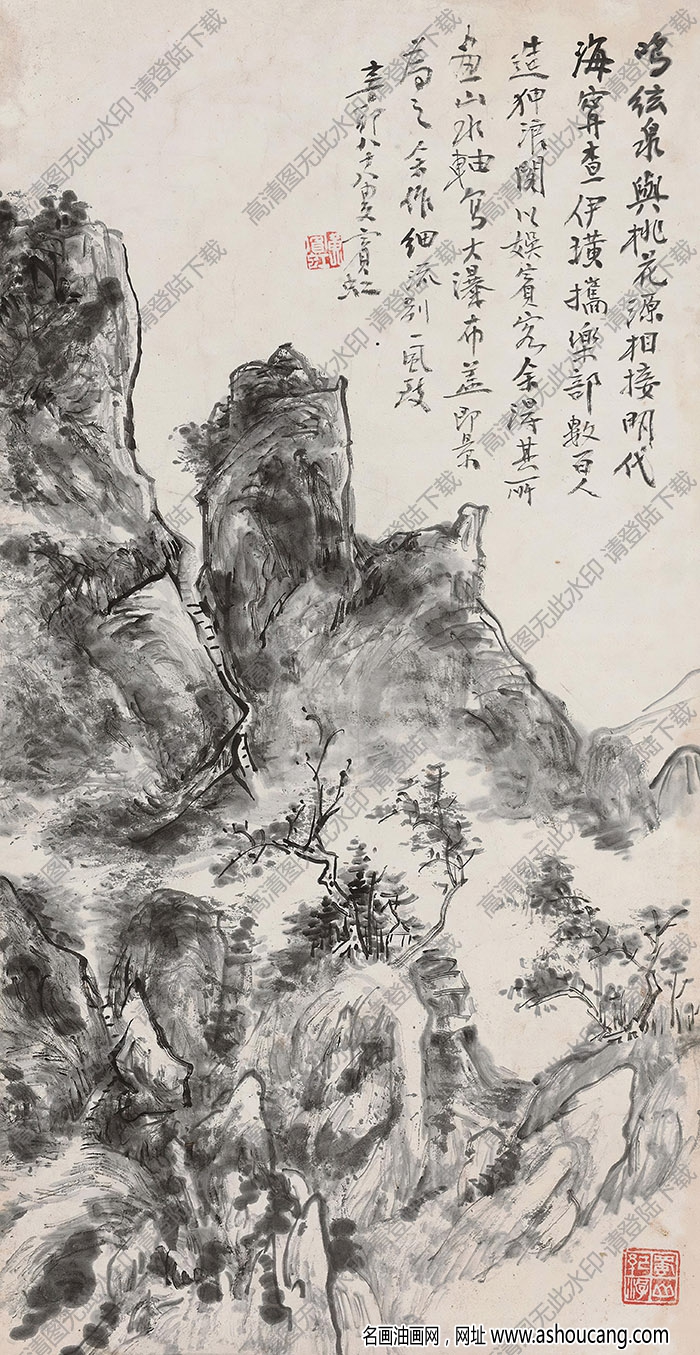 鳴絃泉與桃花源相接明代
海寧查伊璜攜樂部數百人
造狎浪閣以娛賓客余得其所
畫山水軸寫大瀑布蓋即景
為之余作細流別一風致
辛卯八十八叟賓虹
高清图无此水印 请登陆下载
名画油画网，网址 www.ashoucang.com